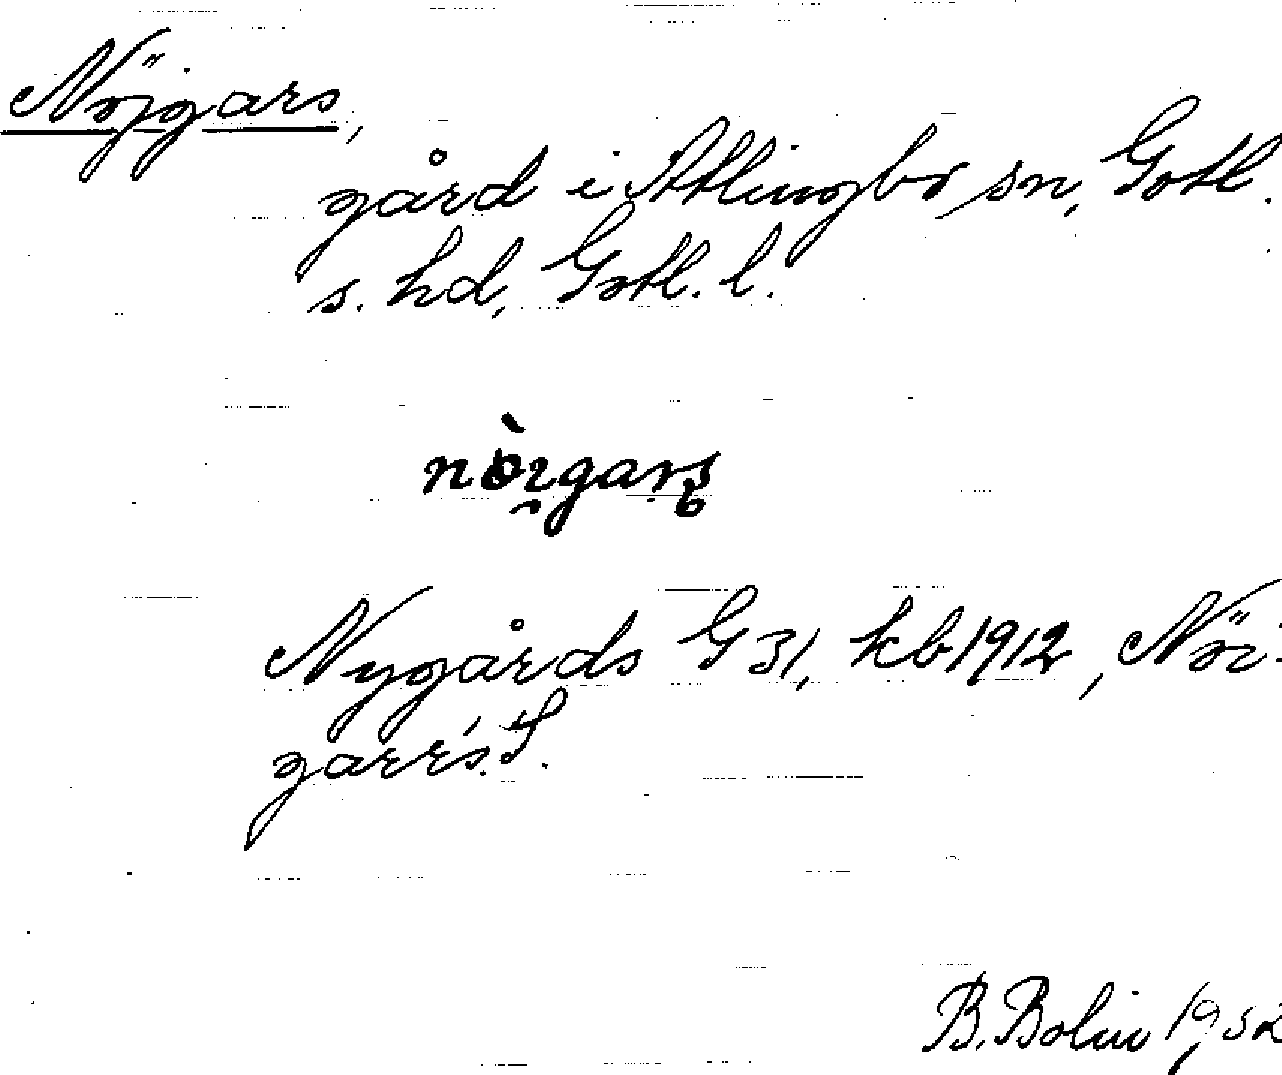 Nöjgars,
gård i Atlingbo sn, Gotl.
s. hd, Gotl. l.
Nygårds G 31, kb 1912, Nöi-
garrs. S.
B. Bolin 1932